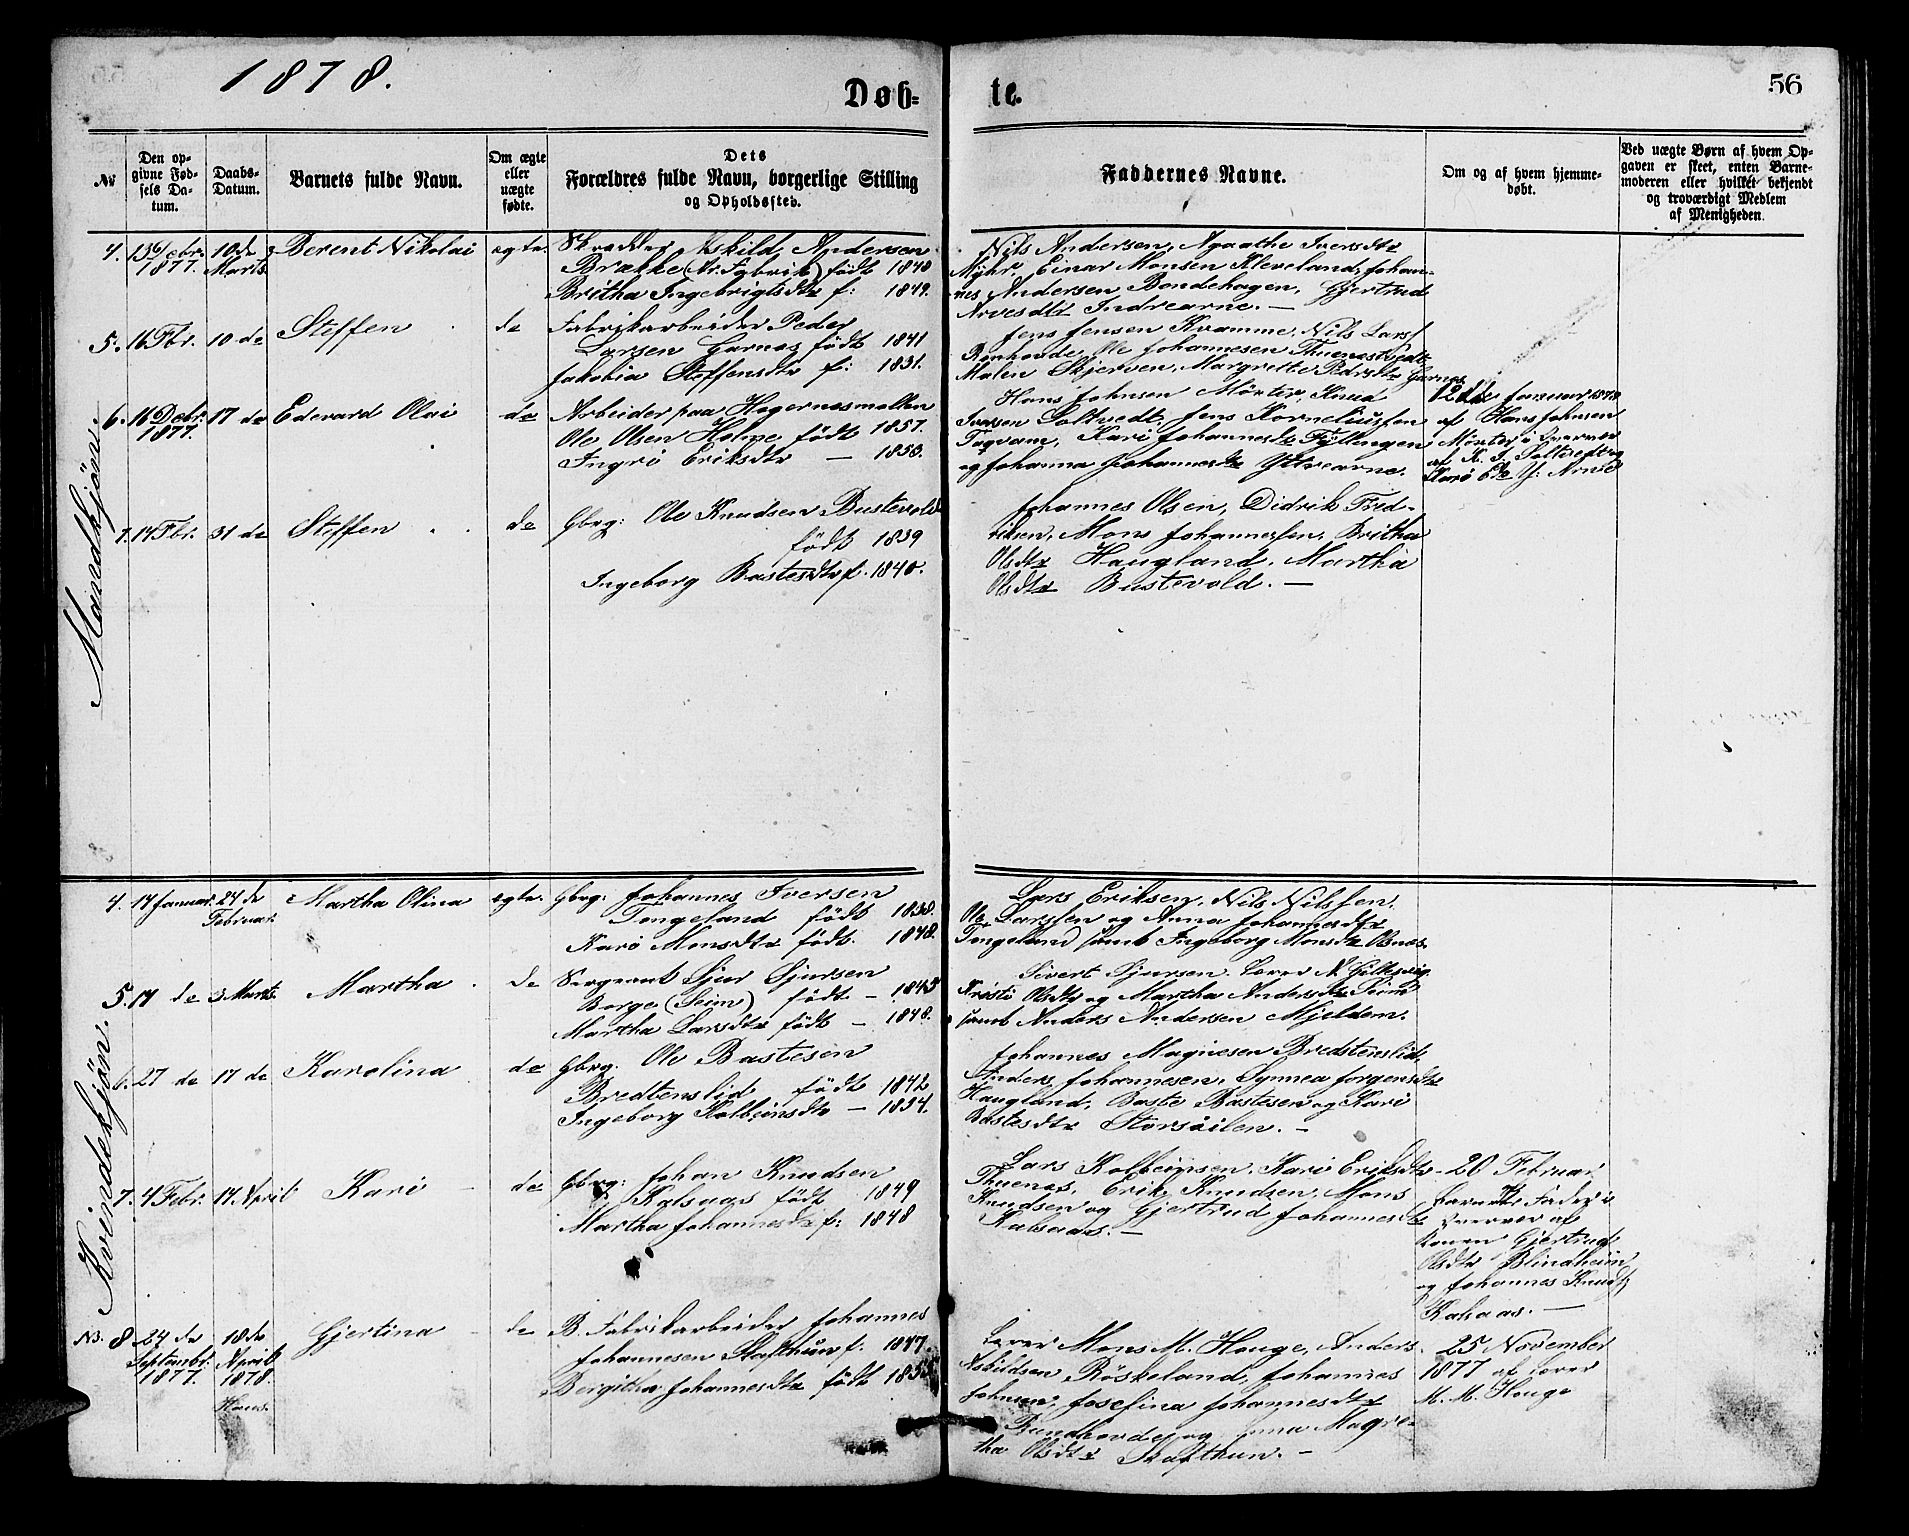 1878.
Døb-
te.
56
№
Den op-
givne Fød-
sels Da-
tum.
Daabs-
Datum.
Barnets fulde Navn.
Om ægte
eller
uægte
fødte.
Dets
Forældres fulde Navn, borgerlige Stilling
og Opholdssted.
Faddernes Navne.
Om og af hvem hjemme-
døbt.
Ved uægte Børn af hvem Op-
gaven er skeet, enten Barne-
moderen eller hvilket bekjendt
og troværdigt Medlem
af Menigheden.
Mandkjön.
4.
1877.
10 de
Marts
Berent Nikolai
egte.
Askild Andersen
Brække (Ar. Fabrik) födt 1840
Britha Ingebrigtsdtr f: 1849.
Nils Andersen, Agathe Iversdtr
Myhr, Einar Monsen Kleveland, Johan-
nes Andersen Bondehagen, Gjertrud
Arvesdtr Indrearne. —
5.
16 Fbr.
10 de
Steffen
de
Fabrikarbeider Peder
Larsen Garnes födt 1841
Jakobia Steffensdtr f: 1831.
Jens Jensen Kvamme, Nils Lars
Ole Johannesen Thunestvedt
Malen Skjerven, Margrethe Pedersdtr Garnes
6.
16 Debr.
1877.
17 de
Edevard Olai
de
Arbeider paa Hegernesmöllen
Ole Olsen Holme födt 1857.
Ingri Eriksdtr — 1853.
Hans Johnsen Mörter, Knud
Iversen Soltvedt, Jens Korneliussen
Tagvam, Kari Johannesdtr Fyllingen
og Johanna Johannesdtr Ytrearne.
12 de Januar 1878
af Hans Johnsen
Mörter i Overvær
af K. I. Soltvedt og
7.
14 Fbr.
31 de
Steffen
de
Gbrg: Ole Knudsen Bustevold
födt 1839
Ingeborg Bastesdtr f. 1840.
Johannes Olsen, Didrik Fred-
riksen, Mons Johannessen, Britha
Olsdtr Haugland, Martha
Olsdtr Bustevold. —
Kvindekjön.
4.
17 Januar.
24 de
Februar.
Martha Olina
egte.
Gbrg: Johannes Iversen
Tengeland födt 1838.
Kari Monsdtr födt. 1848.
Lars Eriksen, Nils Nilssen,
Ole Larssen og Anna Johannesdtr
Tengeland samt Ingeborg Monsdtr
5.
17 de
3 Marts.
Martha
de
Sergeant Sjur Sjursen
Borge (Seim) födt — 1843
Martha Larsdtr födt — 1848.
Sivert Sjursen, Lærer N. Gilhusvig
Kristi Olsdtr og Martha Andersdtr Seim
samt Anders Andersen Mjelden.
6.
27 de
17 de
Karolina
de
Gbrg: Ole Bastesen
Bredtenslid födt 1842
Ingeborg Kolbeinsdtr — 1854.
Johannes Magnesen Bredstenslid,
Anders Johannesen, Synnea Jorgensdtr
Haugland, Baste Bastesen og Kari
Bastesdtr Storsäilen. —
7.
4 Febr.
14. April
Kari
de
Gbrg: Johan Knudsen
Kalsaas födt 1849
Martha Johannesdtr f: 1848
Lars Kolbeinsen, Kari Eriksdtr
Thuenes, Erik Knudsen, Mons
Knudsen og Gjertrud Johannesdtr
Kalsaas. —
20 Februar
Barnets Fader i
Overvær af
Konen Gjertrud
Olsdtr Blindheim
og Johannes Knuds
Kalsaas. —
NB. 8
24 de
Septembr.
1877.
18 de
April
1878.
Haus.
Gjertina
de
B. Fabrikarbeider Johannes
Johannesen Skaftun f: 1847.
Bergitha Johannesdtr födt 1855
Lærer Mons M. Hauge, Anders
Askildsen Röskeland, Johannes
Johnsen, Josefina Johannesdtr
Rundhovde og Anna Magre-
tha Olsdtr Skafthun. —
25 November
1877 af Lærer
M. M. Hauge